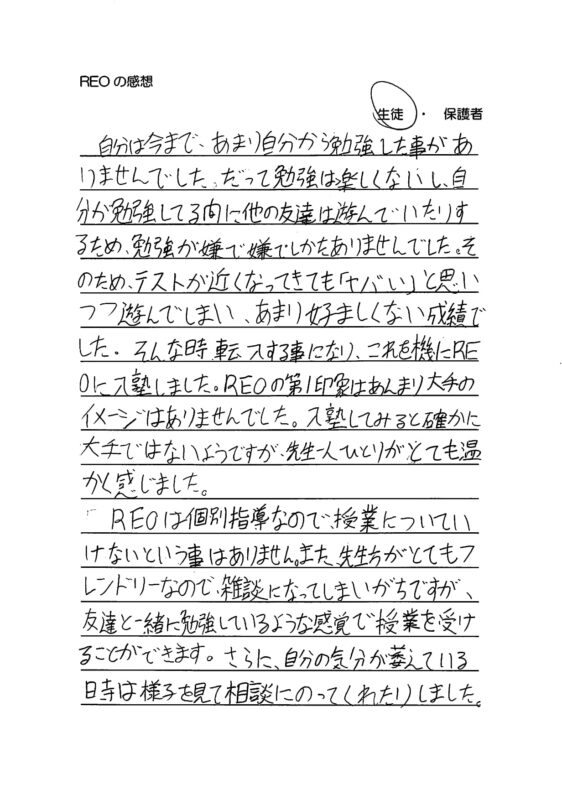 REOの感想
生徒 ・ 保護者
自分は今まで、あまり自分から勉強した事があ
りませんでした。だって勉強は楽しくないし、自
分が勉強してる間に他の友達は遊んでいたりす
るため、勉強が嫌で嫌でしかたありませんでした。そ
のため、テストが近くなってきても「ヤバい」と思い
つつ遊んでしまい、あまり好ましくない成績で
した。そんな時転入する事になり、これを機にRE
Oに入塾しました。REOの第1印象はあんまり大手の
イメージはありませんでした。入塾してみると確かに
大手ではないようですが、先生一人ひとりがとても温
かく感じました。
REOは個別指導なので、授業についてい
けないという事はありません。また、先生方がとてもフ
レンドリーなので、雑談になってしまいがちですが、
友達と一緒に勉強しているような感覚で授業を受け
ることができます。さらに、自分の気分が萎えている
時は様子を見て相談にのってくれたりしました。